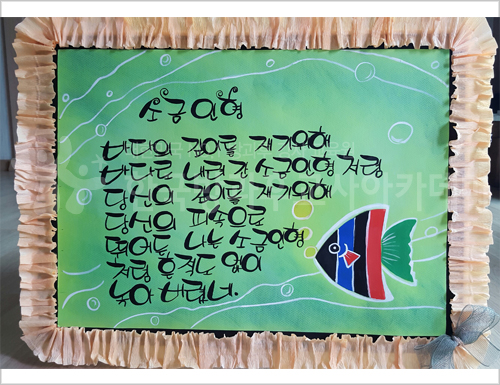 소금인형
바다의 깊이를 재기위해
바다로 내려 간 소금인형 처럼
당신의 깊이를 재기위해
당신의 피속으로
뛰어든 나는 소금인형
처럼 흔적도 없이
녹아 버렸네.